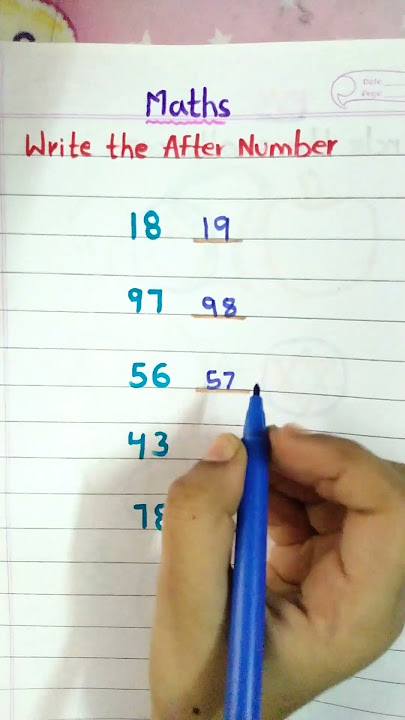 Date
Page
Maths
Write the After Number
18 19
97 98
56 57
43
78